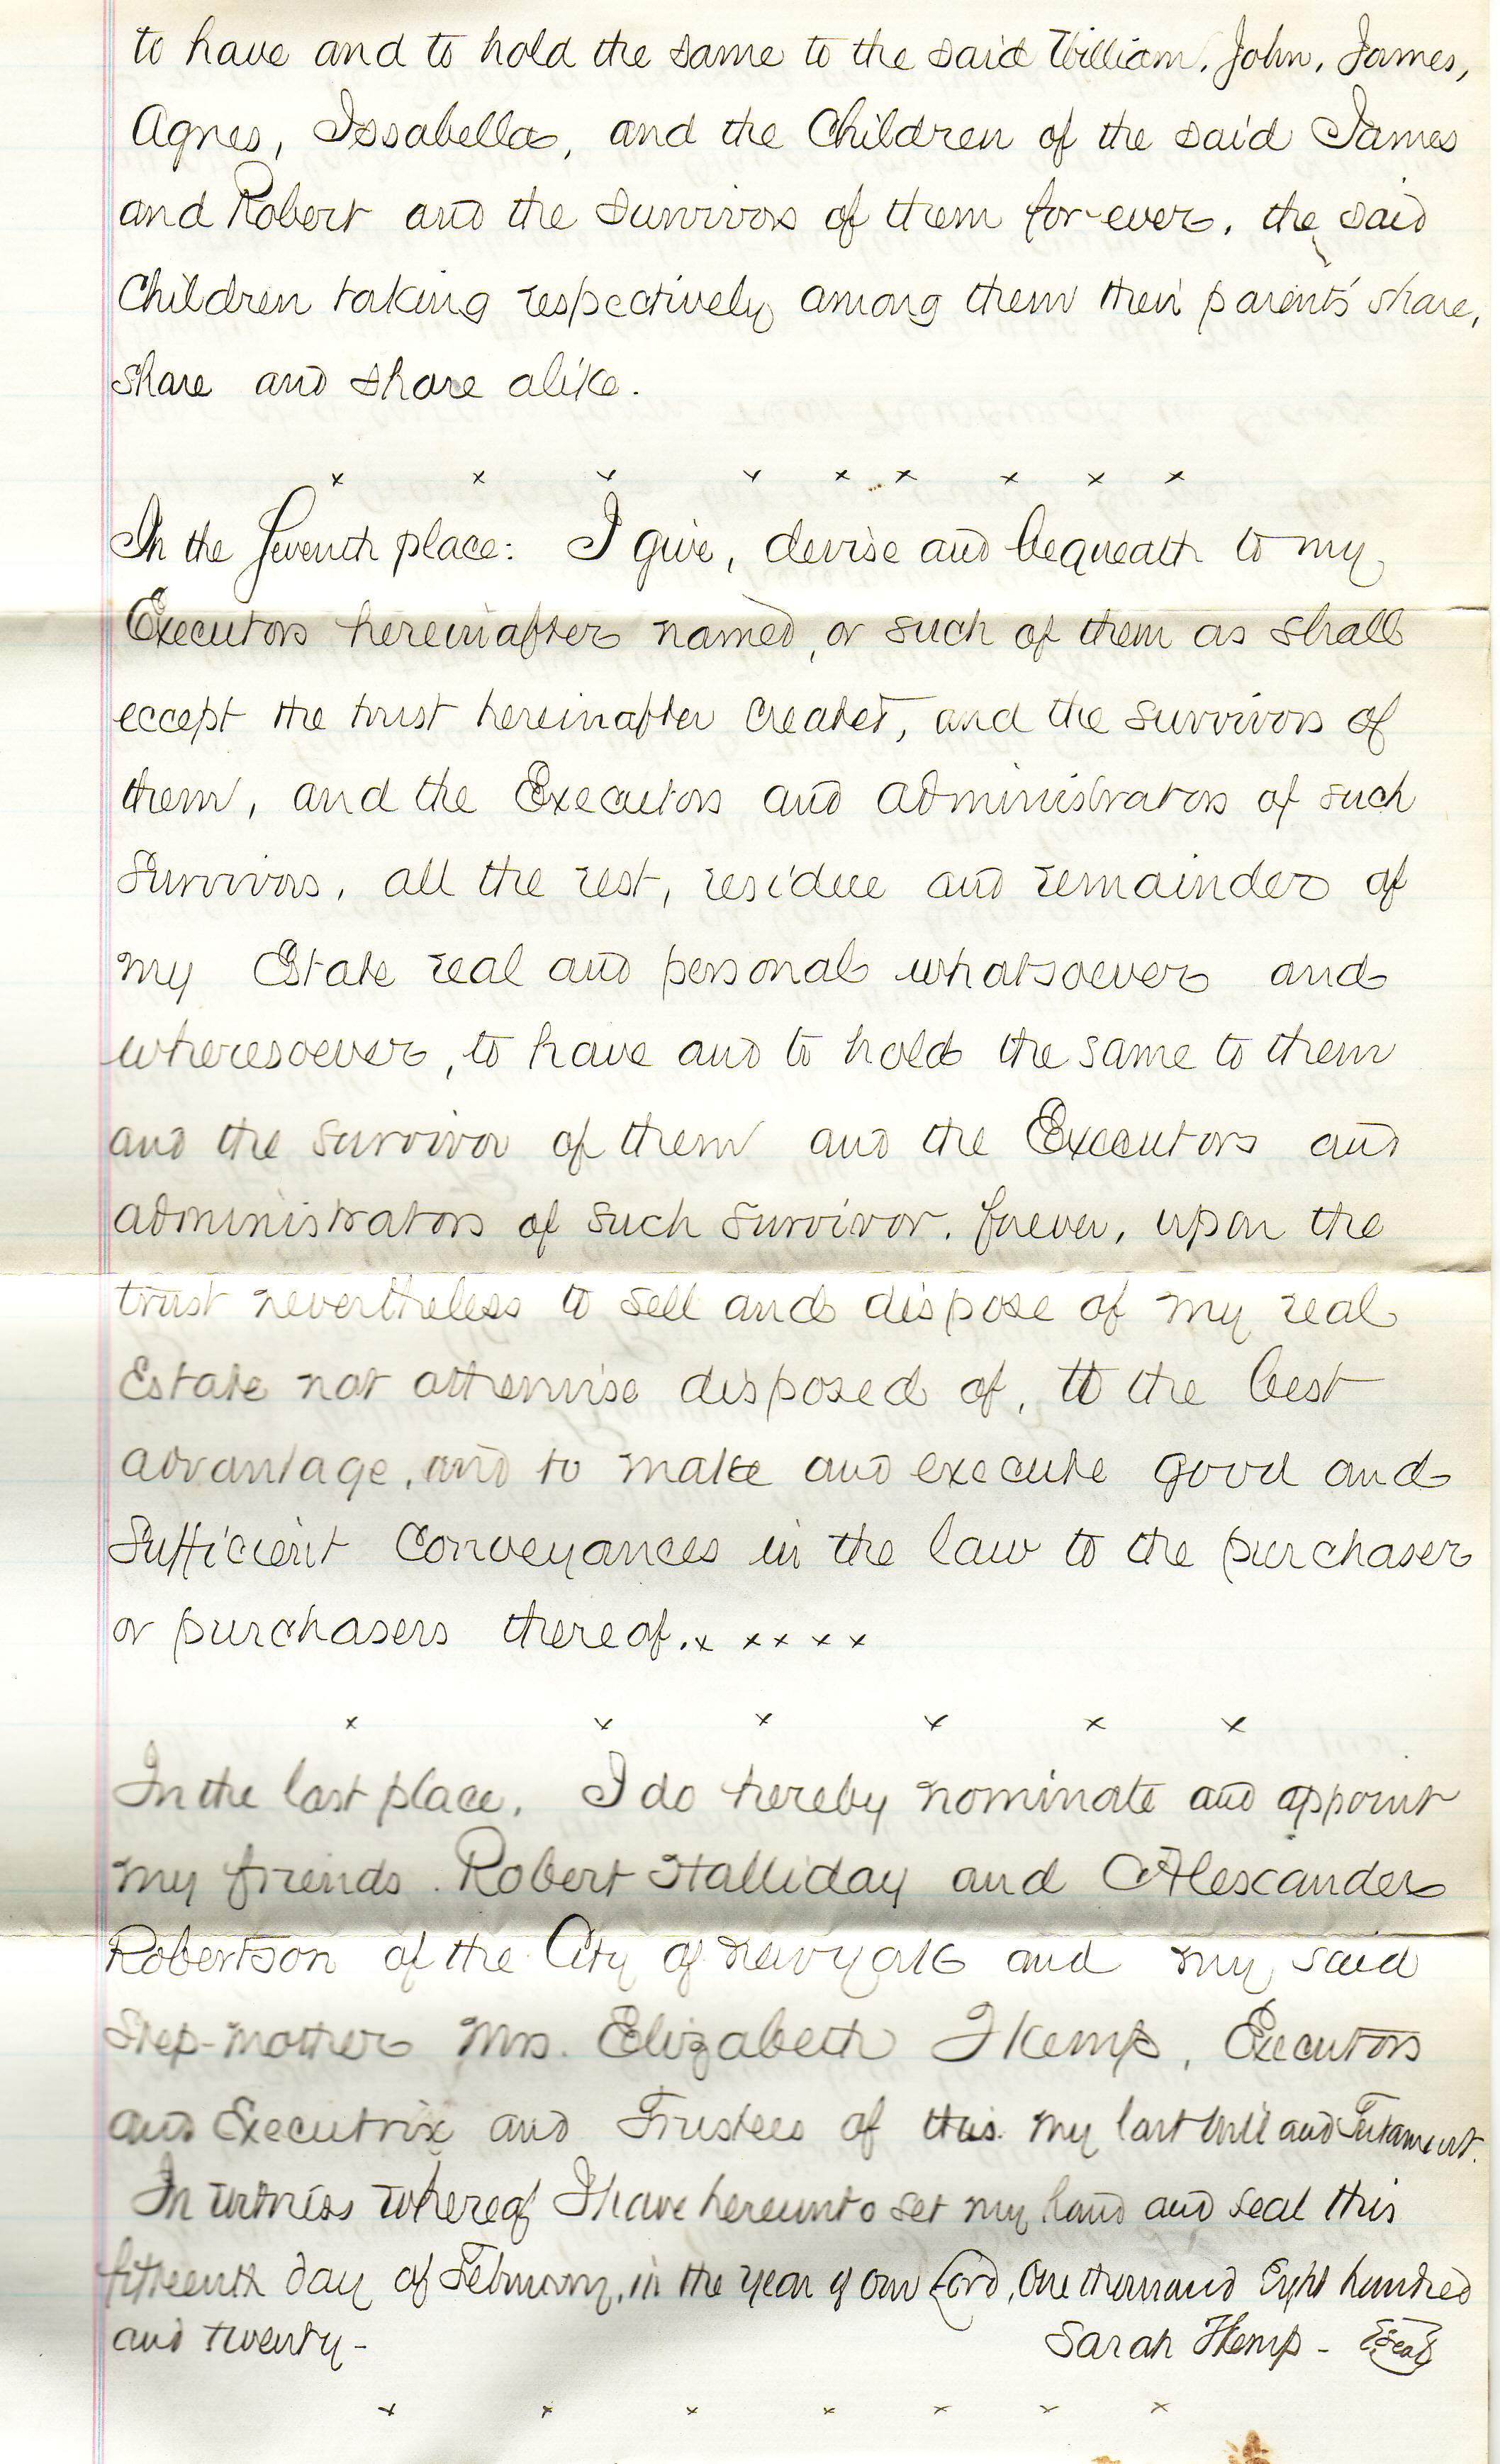 to have and to hold the same to the said William, John, James,
Agnes, Issabella, and the Children of the said James
and Robert and the survivors of them for-ever, the said
Children taking respectively among them their parents' share,
share and share alike.
x x x x x x x x x
In the Seventh place: I give, devise and bequeath to my
Executors hereinafter named, or such of them as shall
eccept the trust hereinafter created, and the survivors of
them, and the Executors and administrators of such
Survivors, all the rest, residue and remainder of
my Estate real and personal whatsoever and
wheresoever, to have and to hold the same to them
and the survivor of them and the Executors and
administrators of such survivor, forever, upon the
trust nevertheless to sell and dispose of my real
Estate not otherwise disposed of, to the best
advantage, and to make and execute good and
Sufficient Conveyances in the law to the purchaser
or purchasers thereof. x x x x x
x x x x x x
In the last place, I do hereby nominate and appoint
my friends Robert Halliday and Alexander
Robertson of the City of New York and my said
Step-mother Mrs. Elizabeth Hemp, Executors
and Executrix and Trustees of this my last Will and Testament.
In witness whereof I have hereunto set my hand and seal this
fifteenth day of February, in the year of our Lord, One thousand Eight hundred
and twenty -
Sarah Hemp - Seal
x x x x x x x